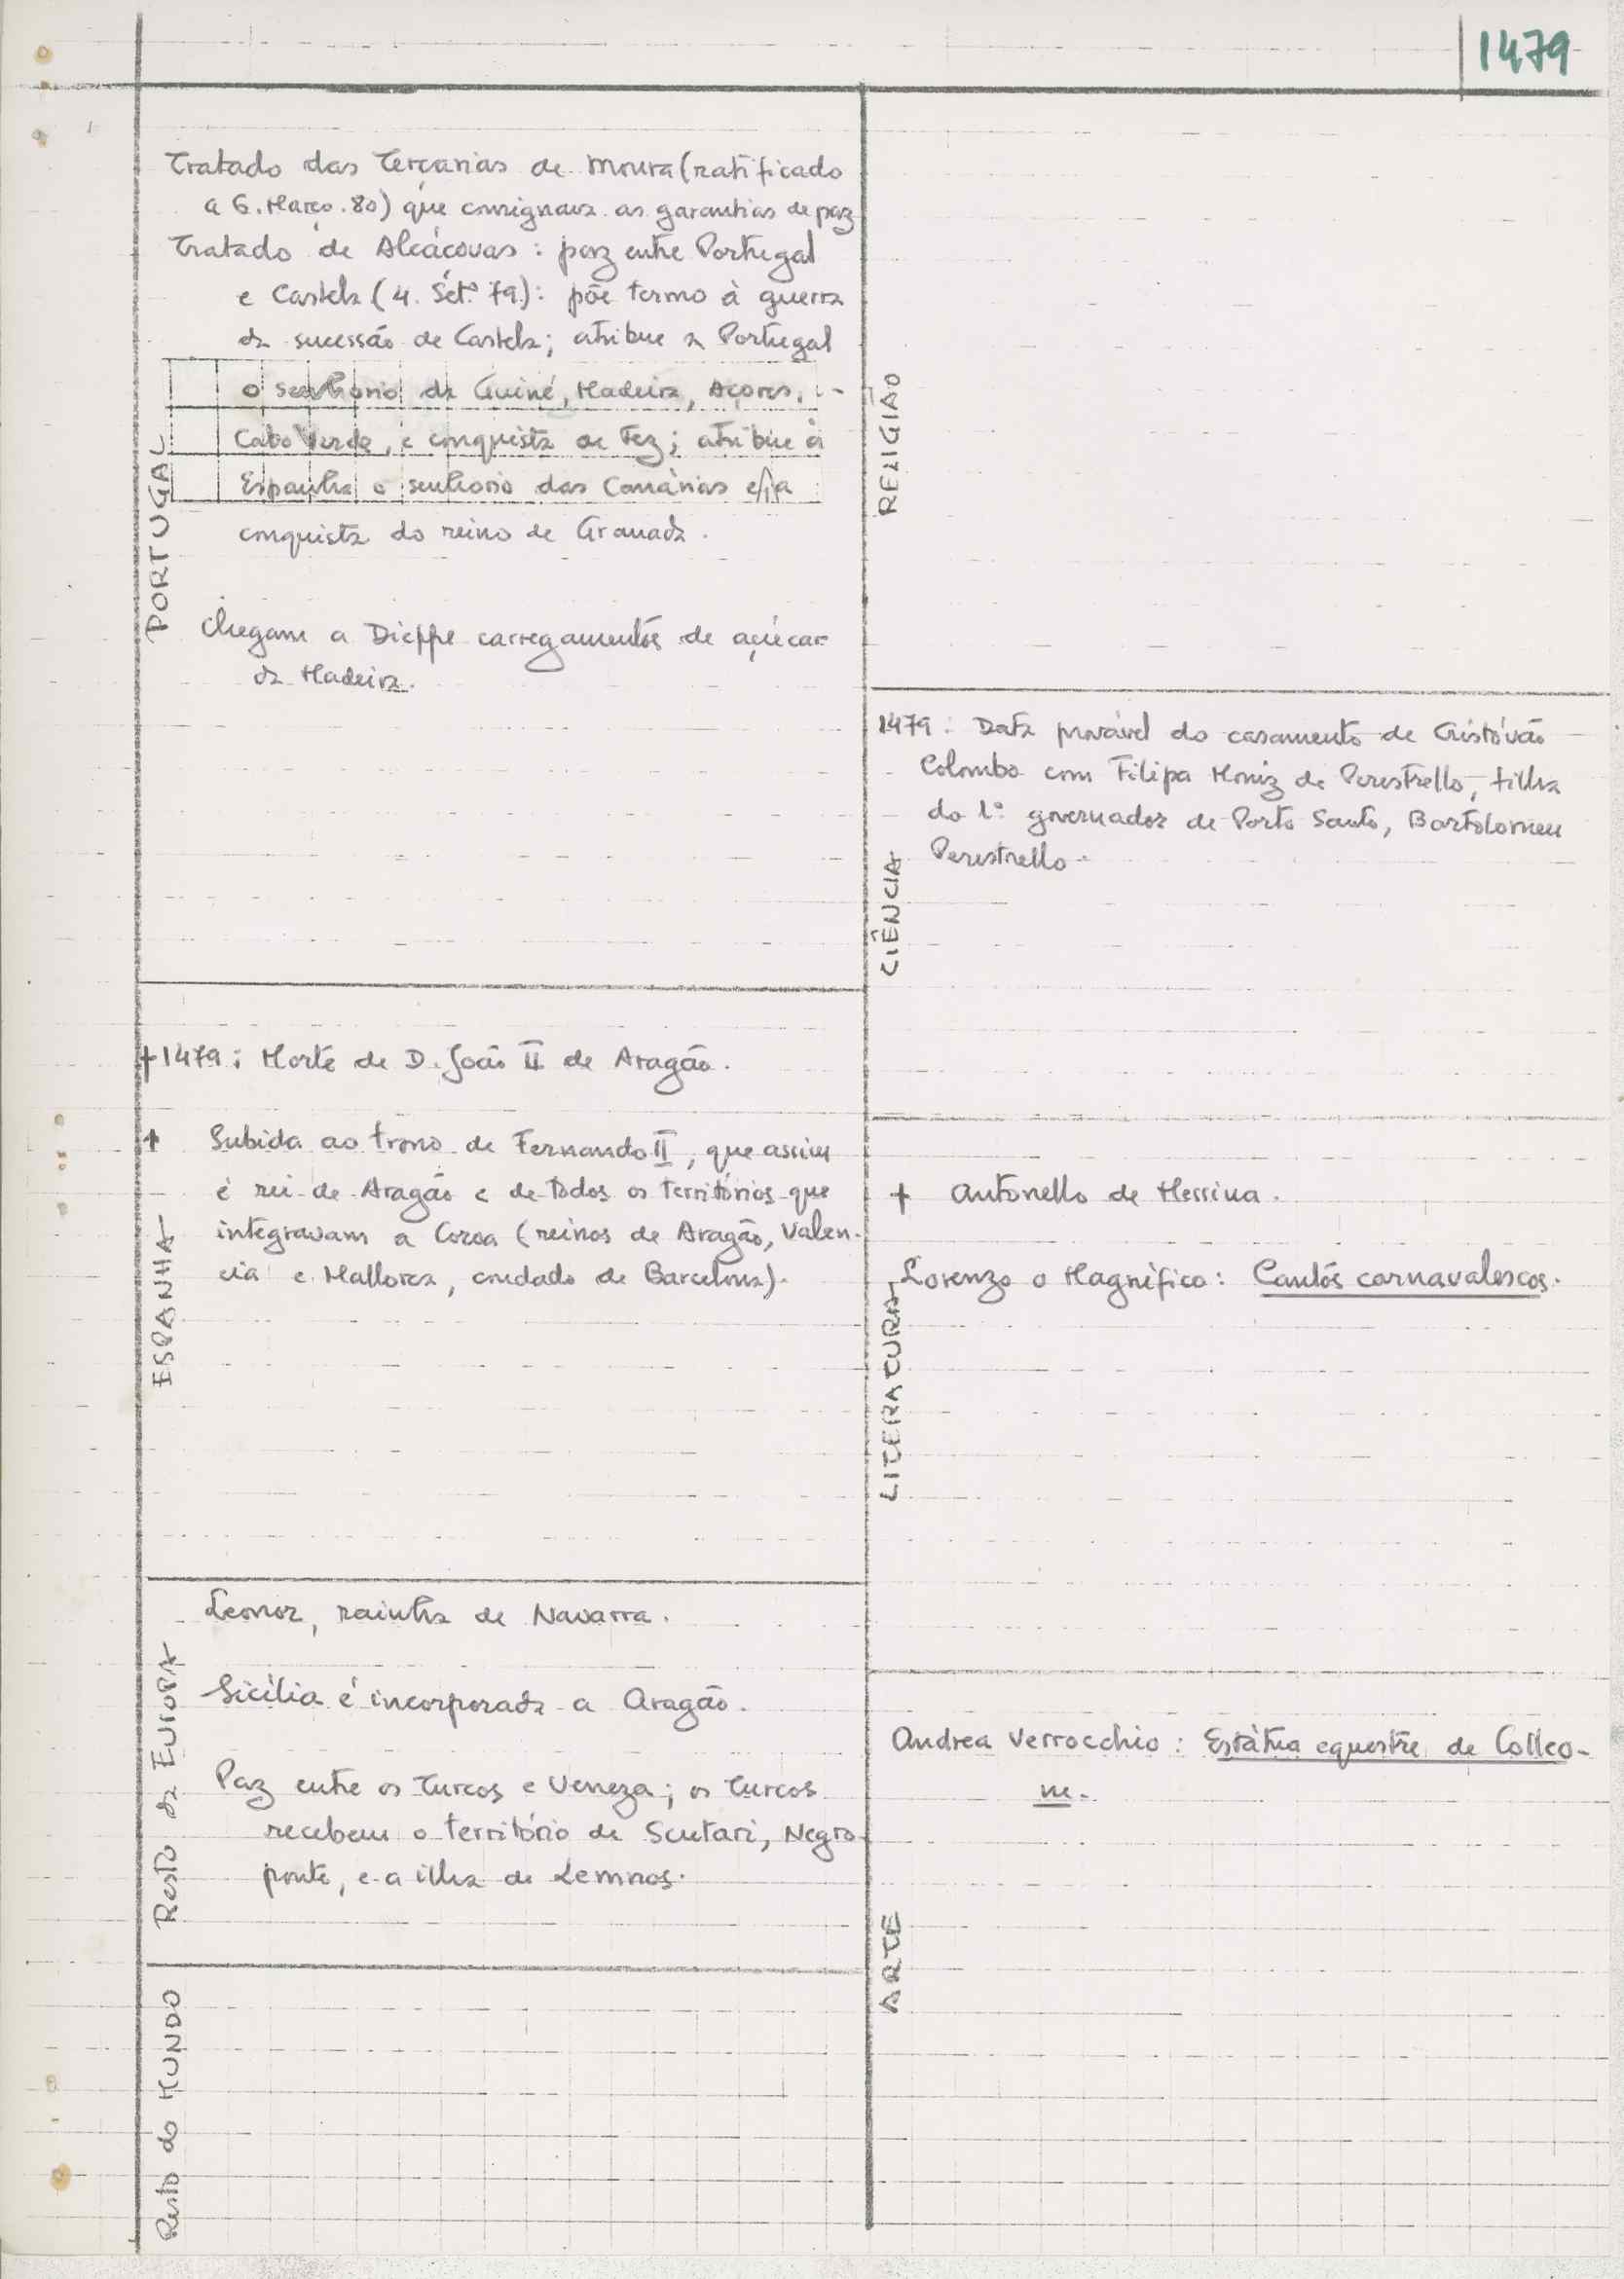 1479
PORTUGAL
Tratado das Terçarias de Moura (ratificado
a 6. Março. 80) que consignava as garantias de paz
Tratado de Alcáçovas: paz entre Portugal
e Castela (4. Set.º 79): põe termo à guerra
da sucessão de Castela; atribue a Portugal
o senhorio da Guiné, Madeira, Açores,
Cabo Verde, e conquista de Fez; atribue à
Espanha o senhorio das Canárias e a
conquista do reino de Granada.
Chegam a Dieppe carregamentos de açúcar
da Madeira.
ESPANHA
+ 1479: Morte de D. João II de Aragão.
+ Subida ao trono de Fernando II, que assim
é rei de Aragão e de todos os territórios que
integravam a Coroa (reinos de Aragão, Valen-
cia e Mallorca, condado de Barcelona).
Resto da EUROPA
Leonor, rainha de Navarra.
Sicília é incorporada a Aragão.
Paz entre os Turcos e Veneza; os Turcos
recebem o território de Scutari, Negro-
ponte, e a ilha de Lemnos.
Resto do MUNDO
RELIGIÃO
CIÊNCIA
1479: Data provável do casamento de Cristóvão
Colombo com Filipa Moniz de Perestrello, filha
do 1º governador de Porto Santo, Bartolomeu
Perestrello.
LITERATURA
+ Antonello de Messina.
Lorenzo o Magnífico: Cantos carnavalescos.
ARTE
Andrea Verrocchio: Estátua equestre de Colleo-
ne.